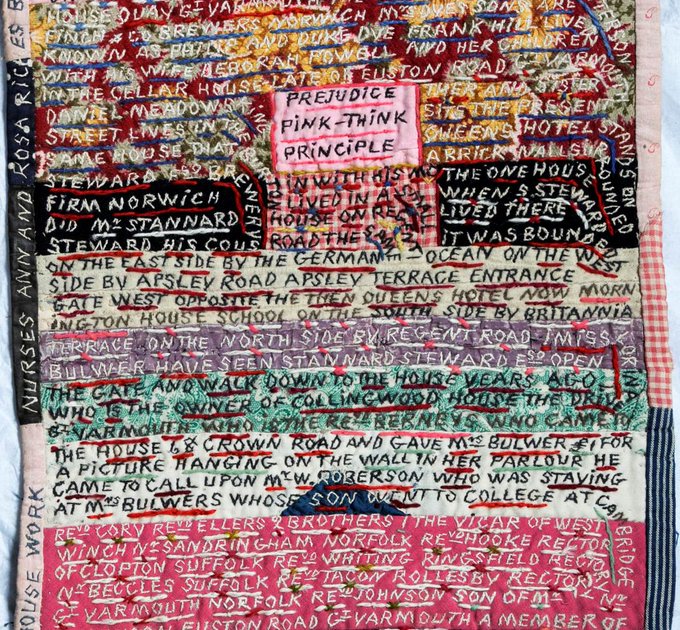 HOUSE QUAY GT YARMOUTH MRS DOVES SONS ARE
FINCH & CO BREWERS NORWICH
KNOWN AS PHILIP AND DUKE DVE FRANK HILL LIVE
WITH HIS WIFE DEBORAH POWELL AND HER CHILDREN
IN THE CELLAR HOUSE LATE OF EUSTON ROAD GT YARMOUTH
DANIEL MEADOW
PREJUDICE
PINK-THINK
PRINCIPLE
HER AND SISTER
SITS THE PRESENT
STREET LIVES IN THE
QUEENS HOTEL STANDS ON
SAME HOUSE THAT
A BRICK WALL SUR
ROUNDED
STEWARD ESQ BREWERY
FIRM NORWICH
DID MR STANNARD
STEWARD HIS COUS
IN WITH HIS MO
LIVED IN A SMALL
HOUSE ON REGENT
ROAD THE
THE ONE HOUSE
WHEN S. STEWARD ESQ
LIVED THERE
IT WAS BOUNDED
ON THE EAST SIDE BY THE GERMAN OCEAN ON THE WEST
SIDE BY APSLEY ROAD APSLEY TERRACE ENTRANCE
GATE WEST OPPOSITE THE THEN QUEENS HOTEL NOW MORN
INGTON HOUSE SCHOOL ON THE SOUTH SIDE BY BRITANNIA
TERRACE ON THE NORTH SIDE BY REGENT ROAD I MISS L
BULWER HAVE SEEN STANNARD STEWARD ESQ OPEN
THE GATE AND WALK DOWN TO THE HOUSE YEARS AGO
WHO IS THE OWNER OF COLLINGWOOD HOUSE THE DRIVE
GT YARMOUTH WHO IS THE REV REEVE WHO CAME TO
THE HOUSE 68 CROWN ROAD AND GAVE MRS BULWER £1 FOR
A PICTURE HANGING ON THE WALL IN HER PARLOUR HE
CAME TO CALL UPON MR W. ROBERSON WHO WAS STAYING
AT MRS BULWERS WHOSE SON WENT TO COLLEGE AT CAM
BRIDGE
REVD CORY REVD ELLERS 2 BROTHERS THE VICAR OF WEST
WINCH ME SANDRINGHAM NORFOLK REVD HOOKE RECTOR
OF CLOPTON SUFFOLK REVD WHITING RINGSFIELD RECTOR
NR BECCLES SUFFOLK REVD TATON ROLLESBY RECTOR NR
GT YARMOUTH NORFOLK REVD JOHNSON SON OF MR
EUSTON ROAD GT YARMOUTH A MEMBER OF
NURSES ANN AND ROSA RICHES
HOUSE WORK